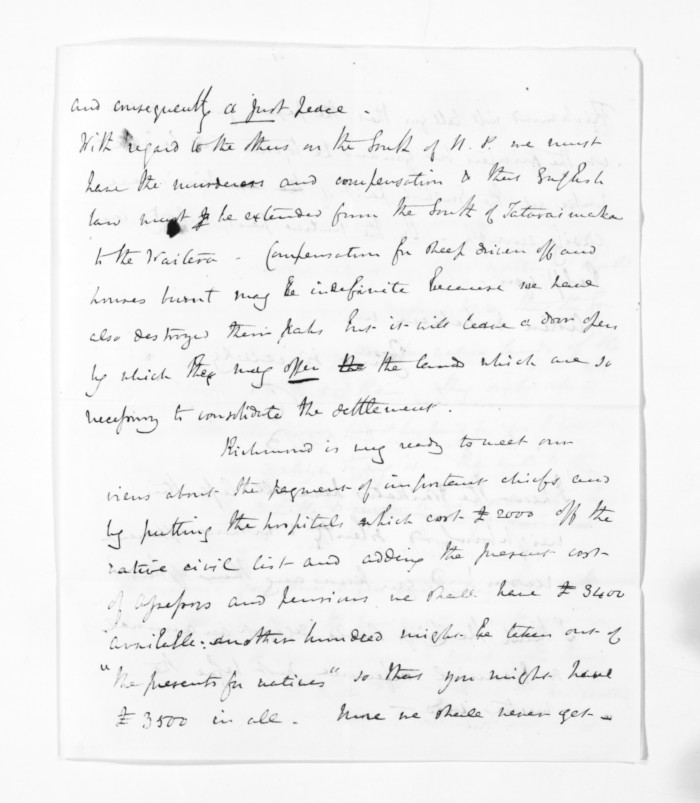 and consequently a just peace -
With regard to the others on the South of N. P. we must
have the murderers and compensation & this English
law must be extended from the South of Tataraimaka
to the Waitera - Compensation for sheep driven off and
houses burnt may be indefinite because we have
also destroyed their pahs but it will leave a door open
by which they may offer the the lands which are so
necessary to consolidate the settlement.
Richmond is very ready to meet our
views about the payment of important chiefs and
by putting the hospitals which cost £2000 off the
native civil list and adding the present cost
of Assessors and pensions we shall have £3400
available: another hundred might be taken out of
"the presents for natives" so that you might have
£3500 in all - More we shall never get -